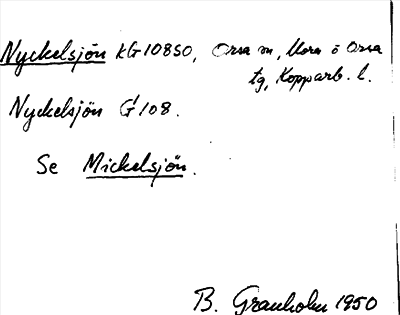 Nyckelsjön KG 108 SO, Orsa sn, Mora o Orsa
tg, Kopparb. l.
Nyckelsjön G 108.
Se Mickelsjön.
B. Granholm 1950